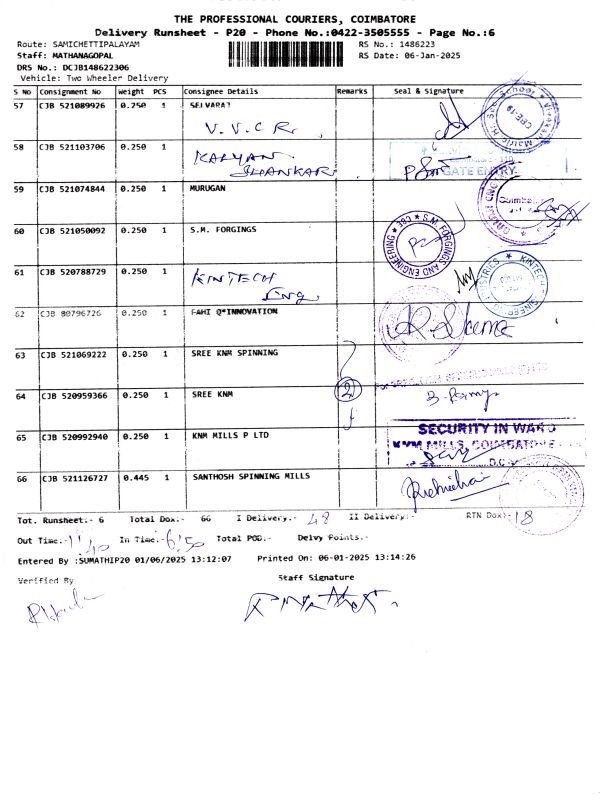 THE PROFESSIONAL COURIERS, COIMBATORE
Delivery Runsheet - P20 - Phone No.:0422-3505555 - Page No.:6
Route: SAMICHETTIPALAYAM RS No.: 1486223
Staff: MATHANAGOPAL RS Date: 06-Jan-2025
DRS No.: DCJB148622306
Vehicle: Two Wheeler Delivery
S No Consignment No Weight PCS Consignee Details Remarks Seal & Signature
57 CJB 521089926 0.250 1 SELVARAJ
V.V.C.R.
58 CJB 521103706 0.250 1 KALYAN
SHANKAR
GATE ENTRY
59 CJB 521074844 0.250 1 MURUGAN
60 CJB 521050092 0.250 1 S.M. FORGINGS
S.M. FORGINGS AND ENGINEERING ★ CBE ★
61 CJB 520788729 0.250 1 KINTECH
Eng.
62 CJB 80796726 0.250 1 FAHI Q*INNOVATION
63 CJB 521069222 0.250 1 SREE KNM SPINNING
64 CJB 520959366 0.250 1 SREE KNM 2
65 CJB 520992940 0.250 1 KNM MILLS P LTD
SECURITY IN WARD
KNM MILLS, COIMBATORE
66 CJB 521126727 0.445 1 SANTHOSH SPINNING MILLS
Tot. Runsheet:- 6 Total Dox:- 66 I Delivery:- 48 II Delivery:- RTN Dox:- 18
Out Time:- 11:40 In Time:- 6:50 Total POD:- Delvy Points:-
Entered By :SUMATHIP20 01/06/2025 13:12:07 Printed On: 06-01-2025 13:14:26
Verified By Staff Signature